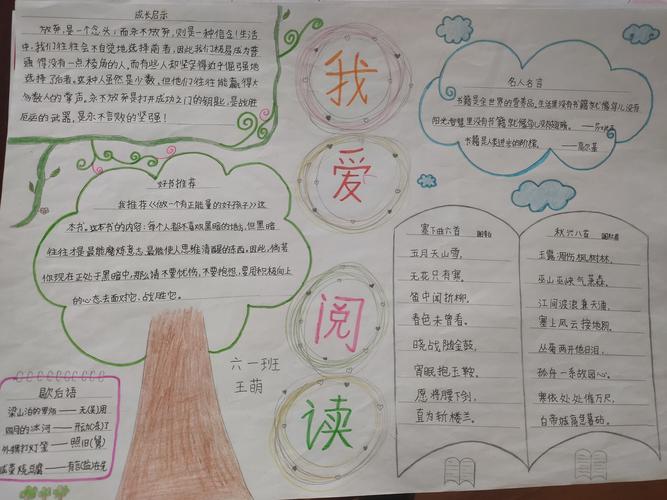 成长启示
放弃,是一个念头;而永不放弃,则是一种信念!生活
中,我们往往会不自觉地选择前者,因此我们极易成为普
通得没有一点棱角的人,而有些人却坚定得近乎倔强地
选择了后者,这种人虽然是少数,但他们往往能赢得大
多数人的掌声。永不放弃是打开成功之门的钥匙,是战胜
厄运的武器,是永不言败的坚强!
我
爱
阅
读
名人名言
书籍是全世界的营养品,生活里没有书籍就好像没有
阳光;智慧里没有书籍就好像鸟儿没有翅膀。
书籍是人类进步的阶梯。——高尔基
好书推荐
我推荐《做一个有正能量的好孩子》这
本书。这本书的内容:每个人都不喜欢黑暗的地域,但黑暗
往往才是最能磨炼意志,最能使人思维清醒的东西。因此,倘若
你现在正处于黑暗中,那么请不要忧伤,不要抱怨,要用积极向上
的心态去面对它,战胜它。
六一班
王萌
歇后语
梁山泊的军师——无(吴)用
四月的冰河——开动(冻)了
外甥打灯笼——照旧(舅)
咸菜烧豆腐——有言(盐)在先
塞下曲六首
五月天山雪,
无花只有寒。
笛中闻折柳,
春色未曾看。
晓战随金鼓,
宵眠抱玉鞍。
愿将腰下剑,
直为斩楼兰。
秋兴八首
玉露凋伤枫树林,
巫山巫峡气萧森。
江间波浪兼天涌,
塞上风云接地阴。
丛菊两开他日泪,
孤舟一系故园心。
寒依处处催刀尺,
白帝城高急暮砧。